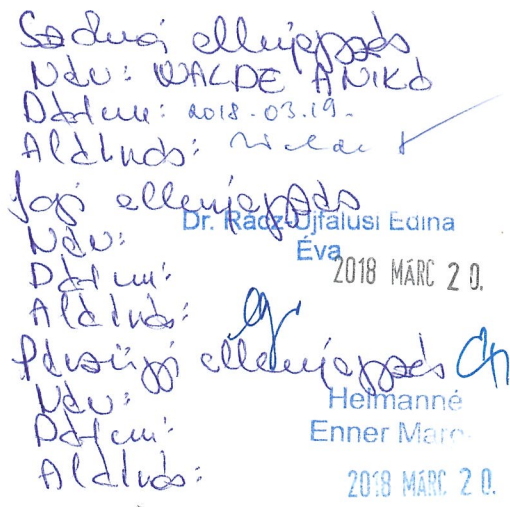 Szakmai ellenjegyzés
Név: WALDE ANIKÓ
Dátum: 2018.03.19.
Aláírás:
Jogi ellenjegyzés
Név: Dr. Rácz-Ujfalusi Edina
Éva
Dátum: 2018 MÁRC 20.
Aláírás:
Pénzügyi ellenjegyzés
Név: Heimanné
Enner
Dátum:
Aláírás: 2018 MÁRC 20.